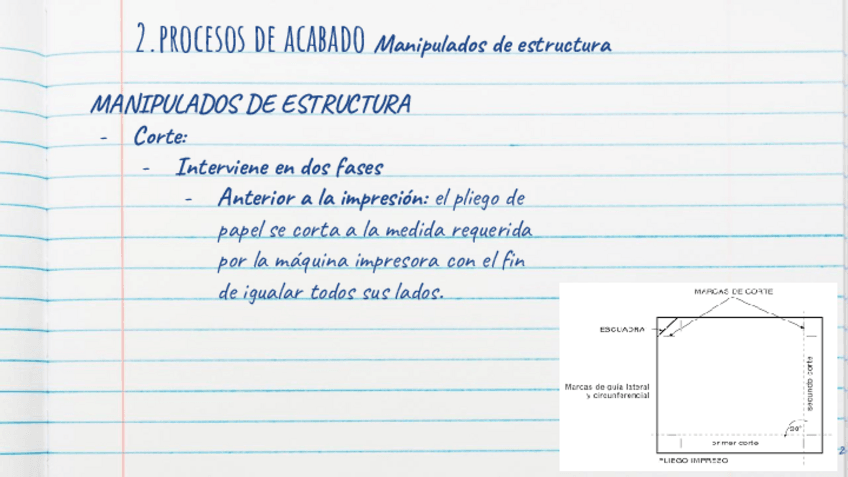 2. PROCESOS DE ACABADO Manipulados de estructura
MANIPULADOS DE ESTRUCTURA
- Corte:
- Interviene en dos fases
- Anterior a la impresión: el pliego de
papel se corta a la medida requerida
por la máquina impresora con el fin
de igualar todos sus lados.
MARCAS DE CORTE
ESCUADRA
Marcas de guía lateral
y circunferencial
segundo corte
90°
primer corte
PLIEGO IMPRESO
2